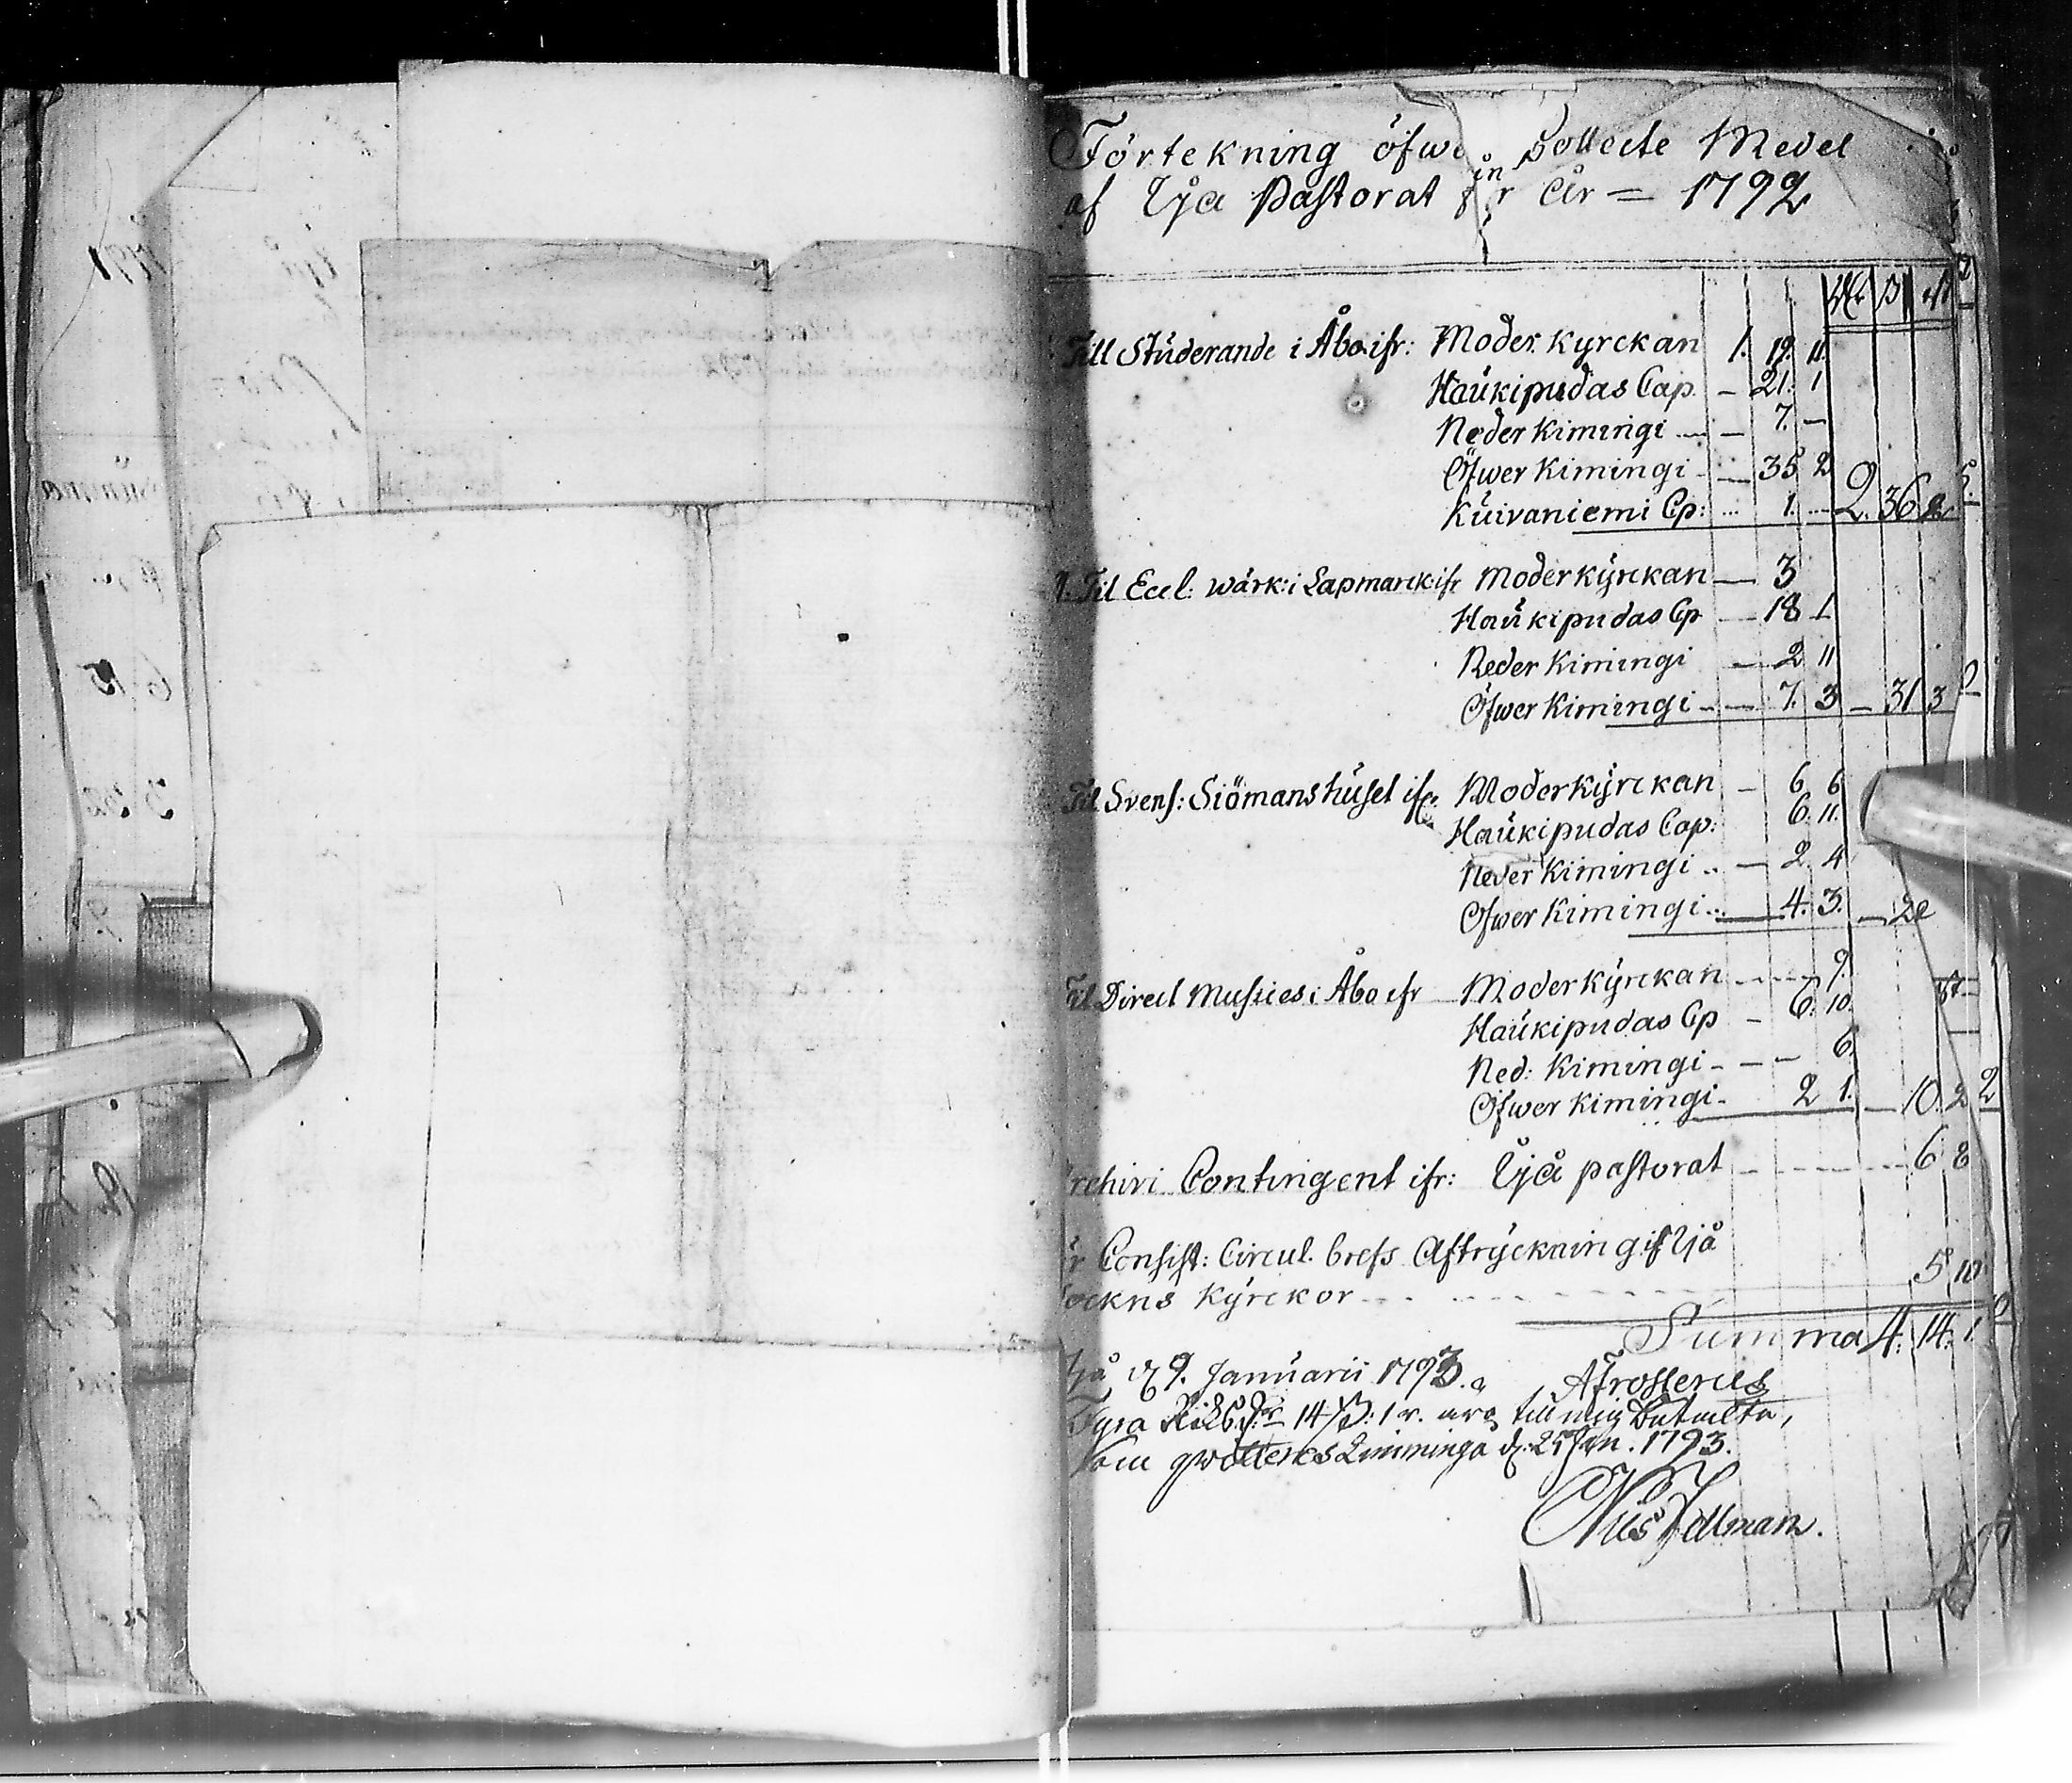 Förtekning öfwe Collecte Medel
af Ijå Pastorat för År = 1792
Till Studerande i Åbo ifr: Moder kyrckan 1. 19. 11.
Haukipudas Cap. — 21. 1
Neder Kimingi — 7. —
Öfwer Kimingi — 35 2
Kuivaniemi Cp: 1. — 2. 36
Til Eccl: wärk: i Lapmarck ifr Moderkyrckan — 3
Haukipudas Cp — 18 1
Neder Kimingi — 2 11
Öfwer Kimingi — 7. 3 — 31 3
Til Svens: Siömanshuset ifr. Moderkyrckan — 6 6
Haukipudas Cap: 6. 11.
Neder Kimingi — 2. 4
Öfwer Kimingi — 4. 3. — 20
Til Direct Mussies i Åbo ifr Moderkyrckan — 9.
Haukipudas Cp — 6. 10.
Ned: Kimingi — 6.
Öfwer Kimingi — 2 1. — 10. 2
rchivi Contingent ifr: Ijå pastorat 6 8
r Consist: Circul. brefs Aftryckning if Ijå
ockns Kyrckor 5 10
Summa 4. 14. 1.
Ijå d 9. Januarii 1793. A Frosterus
Fyra Riksd:r 14 ß: 1 r. äro till mig betalta,
som qwitteras Limminga d. 25 Jan. 1793.
Nils Fellman.